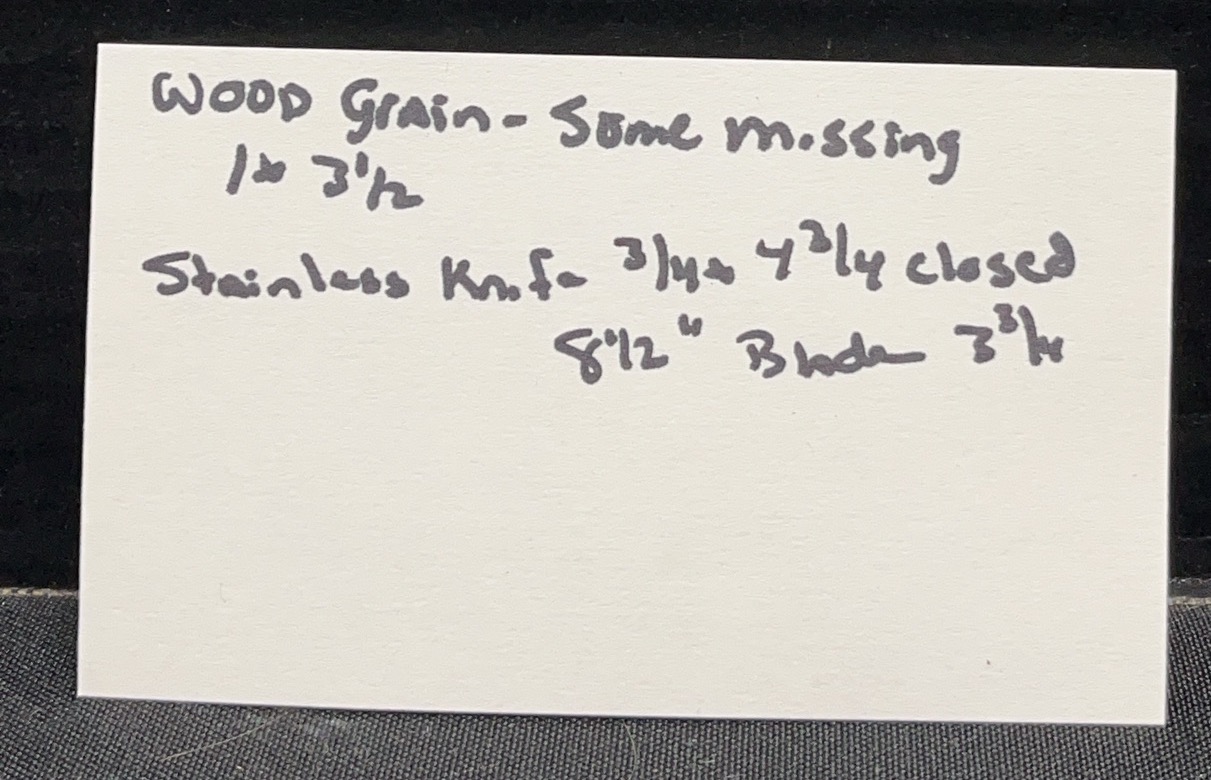 WOOD Grain - Some missing
1x 3 1/2
Stainless Knife 3/4x 4 3/4 closed
8 1/2" Blade 3 3/4